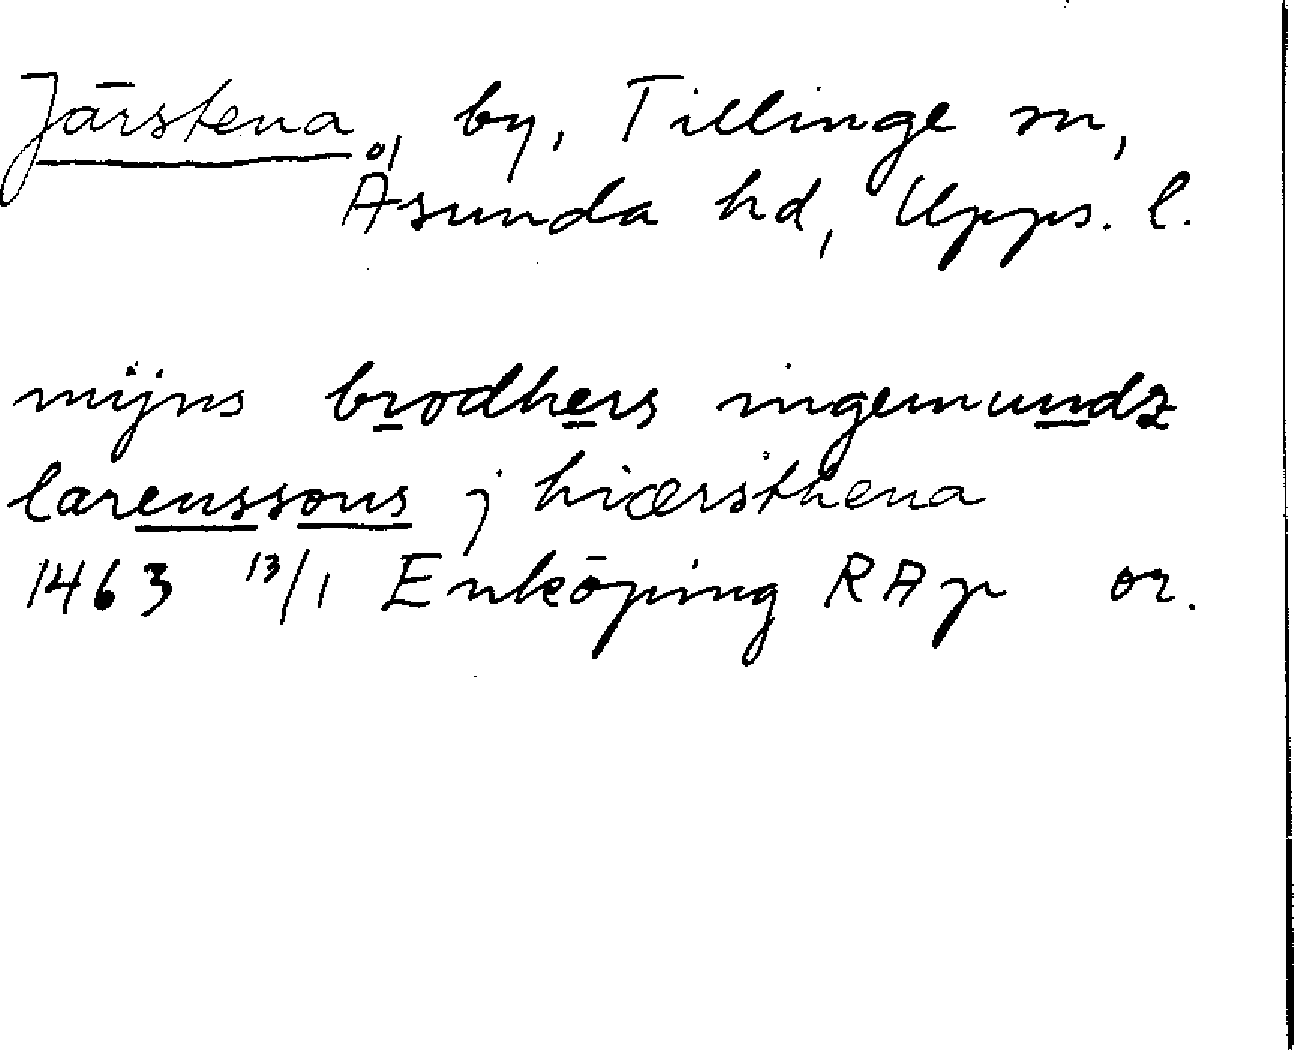 Järstena, by, Tillinge sn,
Åsunda hd, Upps. l.
mijns brodhers ingemundz
larenssons j hiærsthena
1463 13/1 Enköping RAp or.